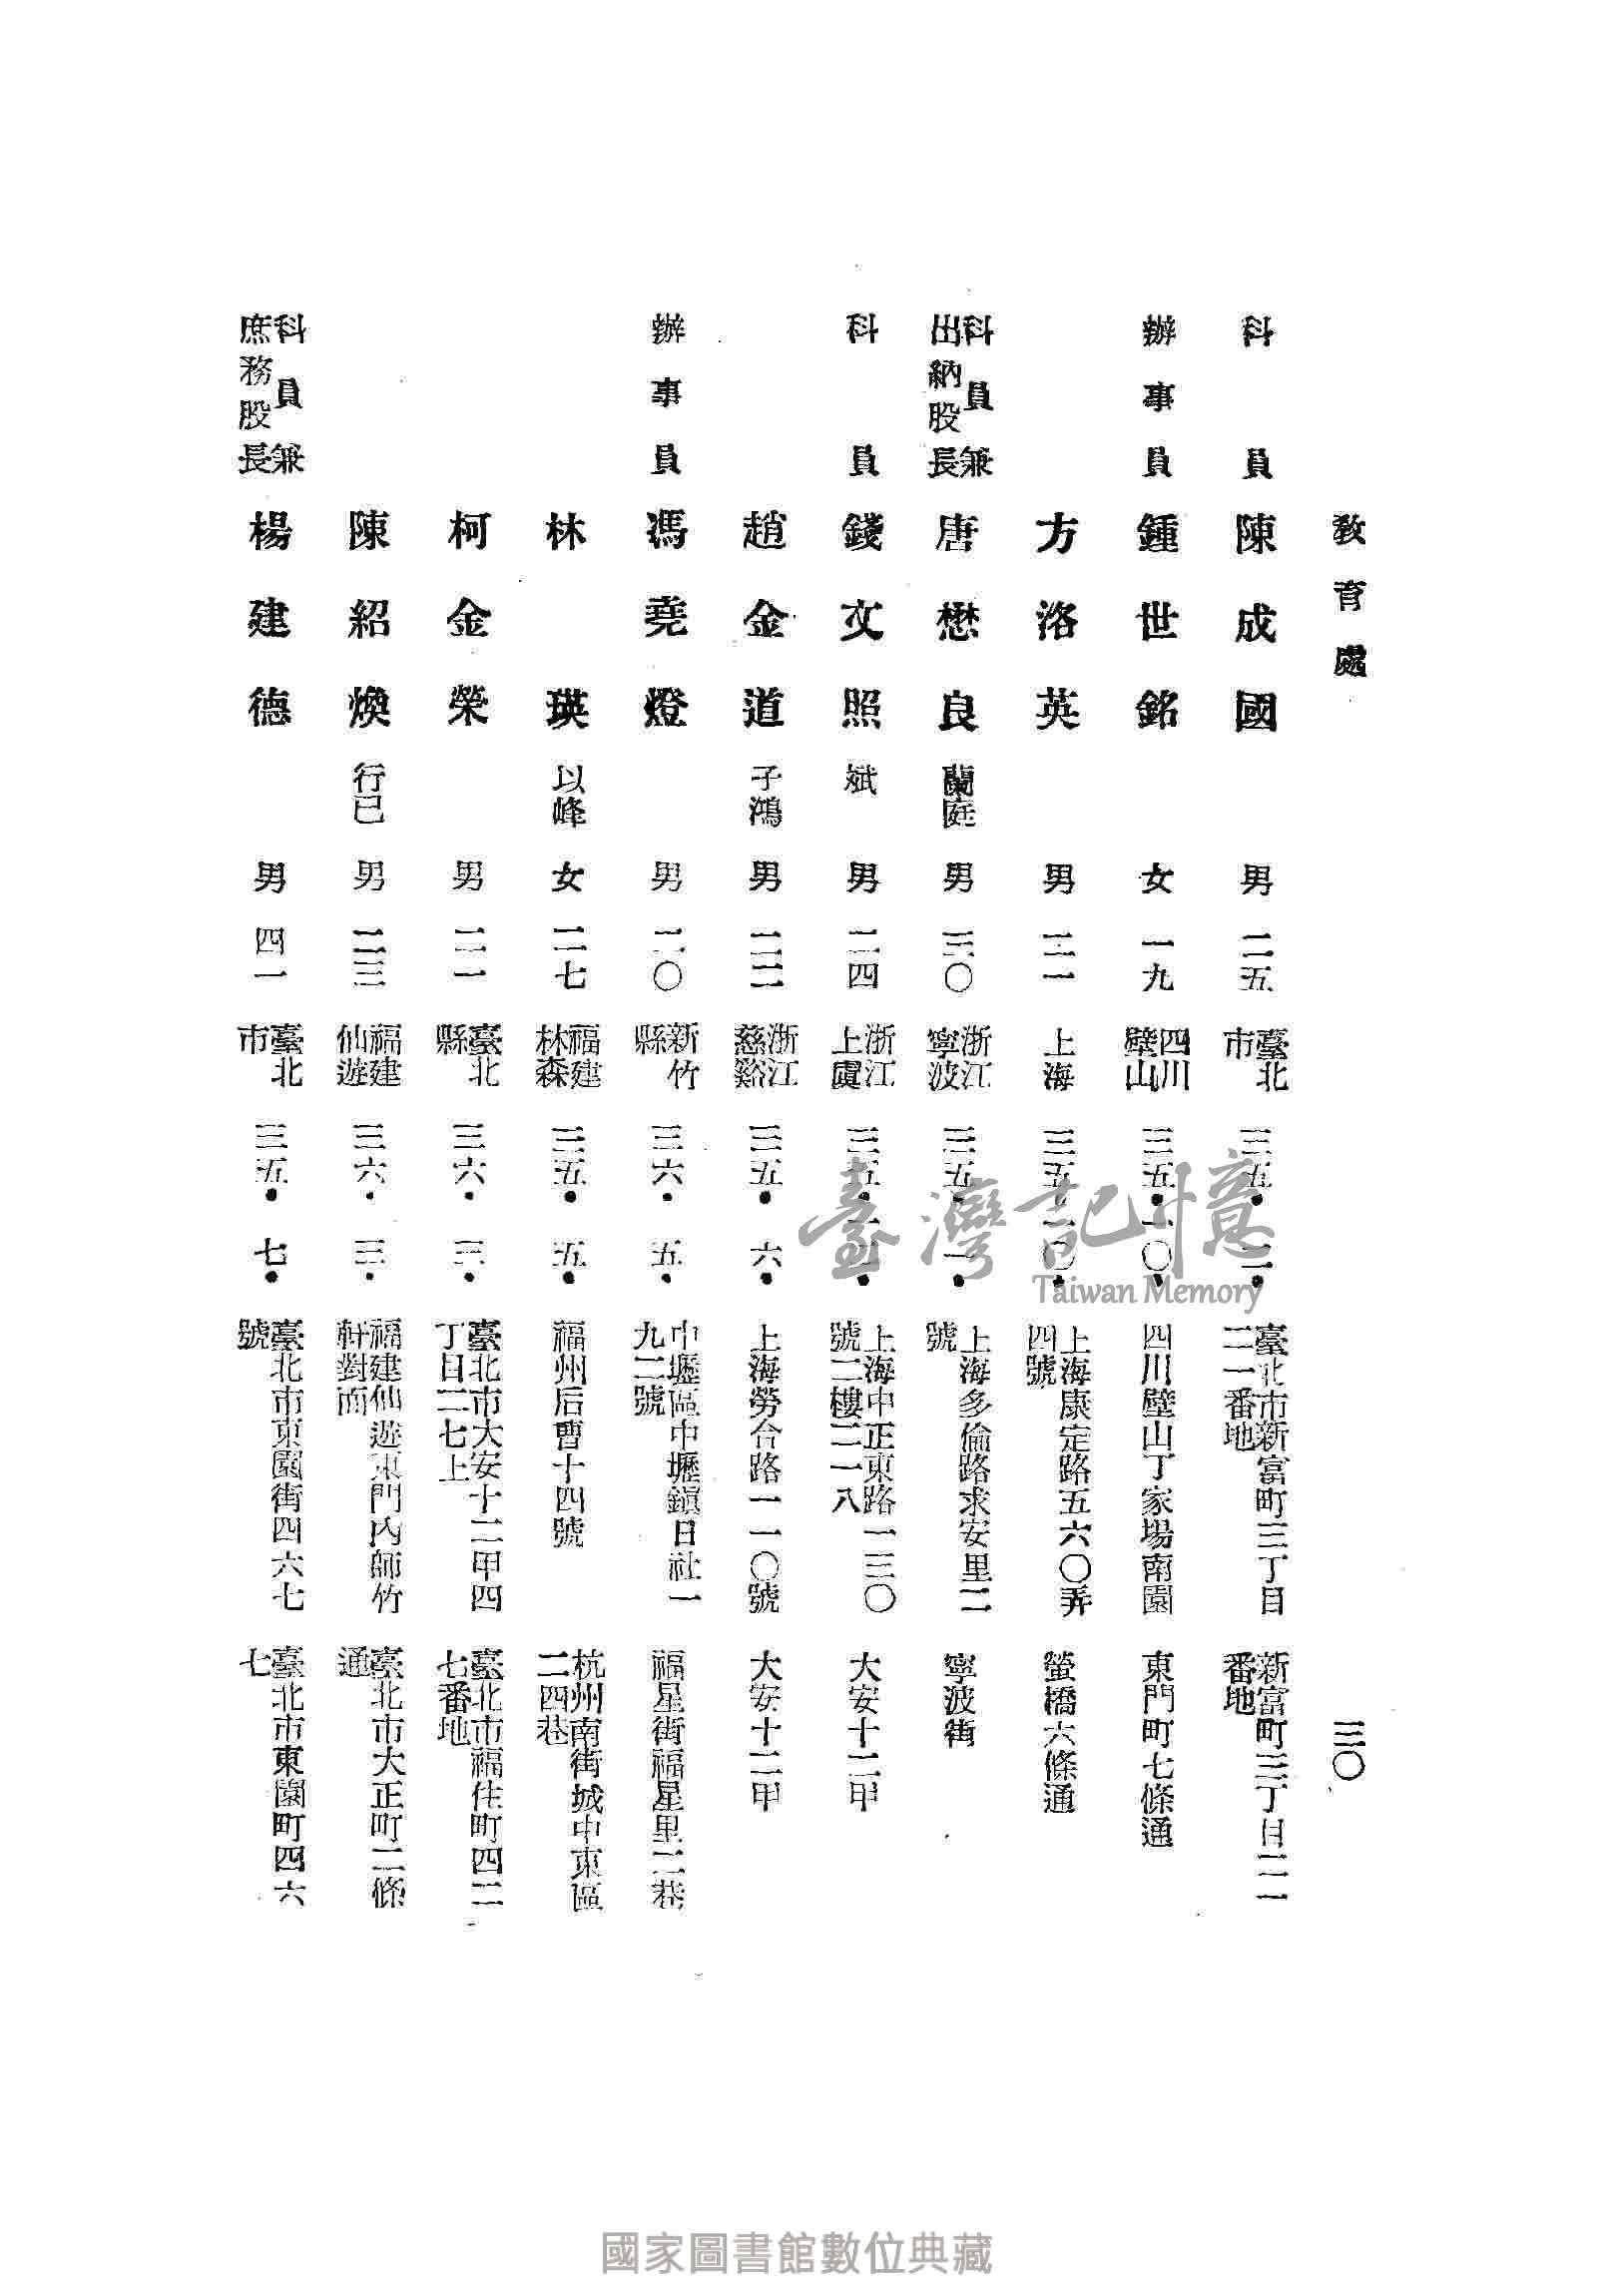 教育處
三〇
科員 陳成國 男 二五 臺北市 三五・ 二・ 臺北市新富町三丁目二一番地 新富町三丁目二一番地
辦事員 鍾世銘 女 一九 四川璧山 三五・一〇・ 四川璧山丁家場南園 東門町七條通
方洛英 男 二一 上海 三五・一〇・ 上海康定路五六〇弄四號 螢橋六條通
科員兼出納股長 唐懋良 蘭庭 男 三〇 浙江寧波 三五・ 一・ 上海多倫路求安里二號 寧波街
科員 錢文照 斌 男 二四 浙江上虞 三五・ 上海中正東路一三〇號二樓二一八 大安十二甲
趙金道 子鴻 男 二二 浙江慈谿 三五・六・ 上海勞合路一一〇號 大安十二甲
辦事員 馮堯燈 男 二〇 新竹縣 三六・五・ 中壢區中壢鎮日社一九二號 福星街福星里二巷
林瑛 以峰 女 二七 福建林森 三五・五・ 福州后曹十四號 杭州南街城中東區二四巷
柯金榮 男 二一 臺北縣 三六・三・ 臺北市大安十二甲四丁目二七上 臺北市福住町四二七番地
陳紹煥 行已 男 二三 福建仙遊 三六・三・ 福建仙遊東門內師竹軒對面 臺北市大正町二條通
科員兼庶務股長 楊建德 男 四一 臺北市 三五・七・ 臺北市東園街四六七號 臺北市東園町四六七
臺灣記憶
Taiwan Memory
國家圖書館數位典藏